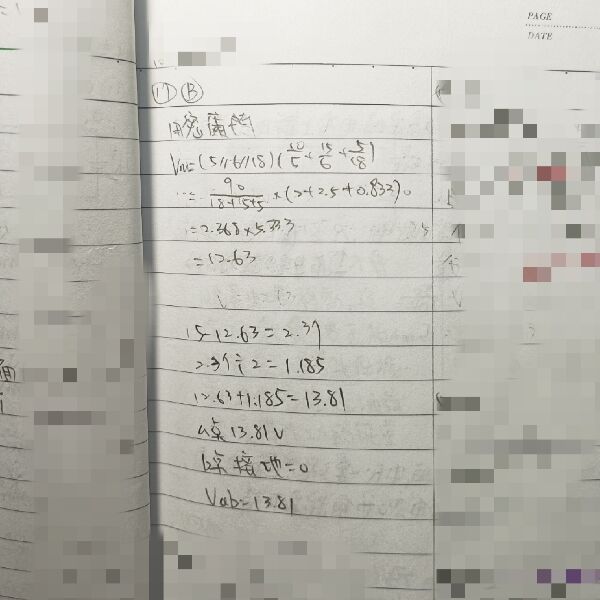 PAGE
DATE
17 B
用密爾門
Vm=(5//6//18)(10/5+15/6+5/18)
=90/(18+15+5)×(2+2.5+0.833)
=2.368×5.333
=12.63
15-12.63=2.37
2.37÷2=1.185
12.63+1.185=13.81
a点 13.81V
b点接地=0
Vab=13.81